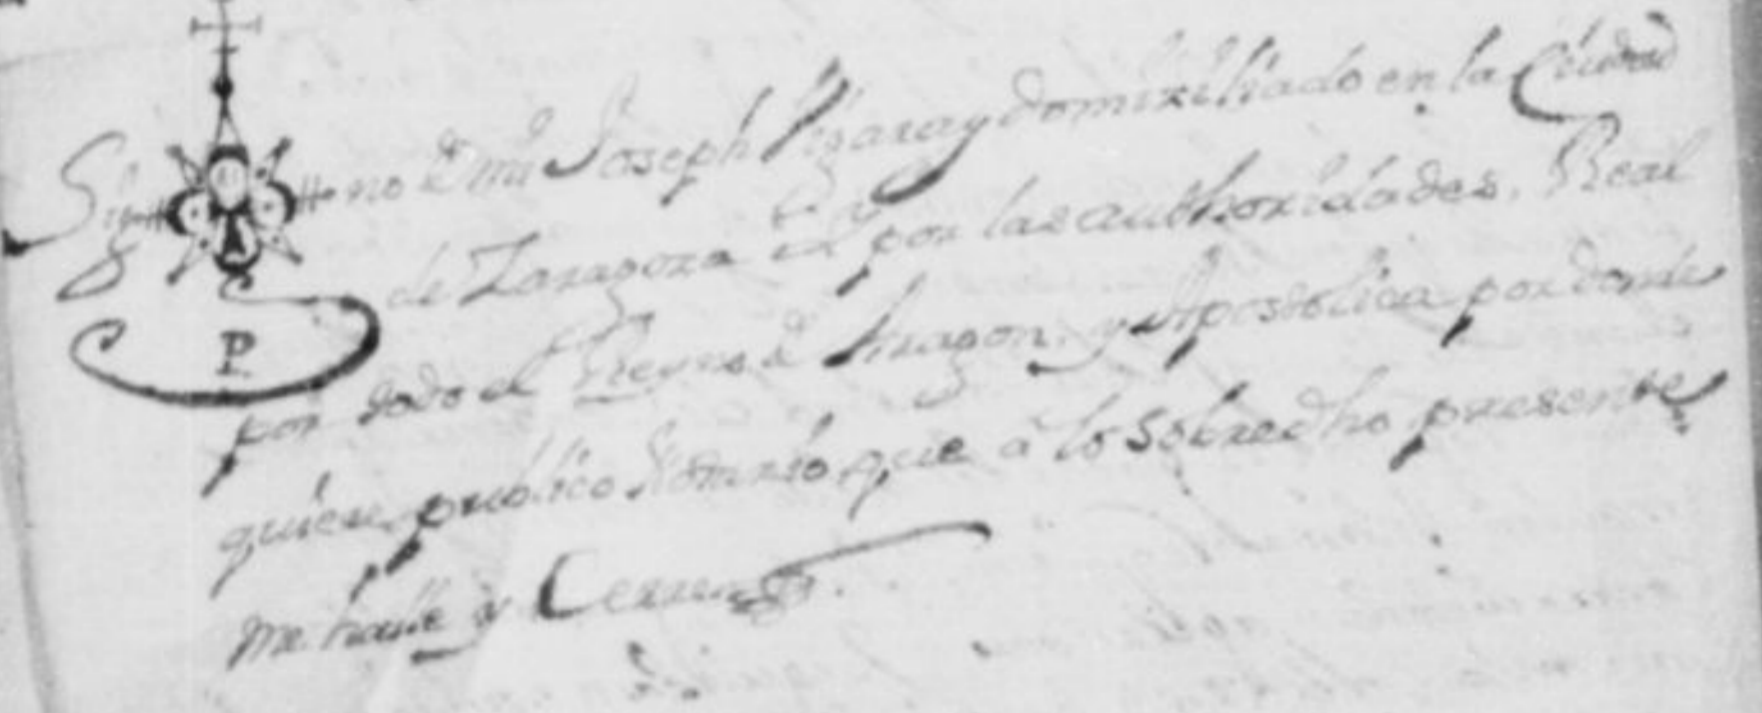 Sig no de mi Joseph domiciliado en la Ciudad
de Zaragoza y por las authoridades, Real
por todo el Reyno de Aragon, y Apostolica por donde
quiere publico Notario que â lo sobredho presente
me halle y Cerre.
P